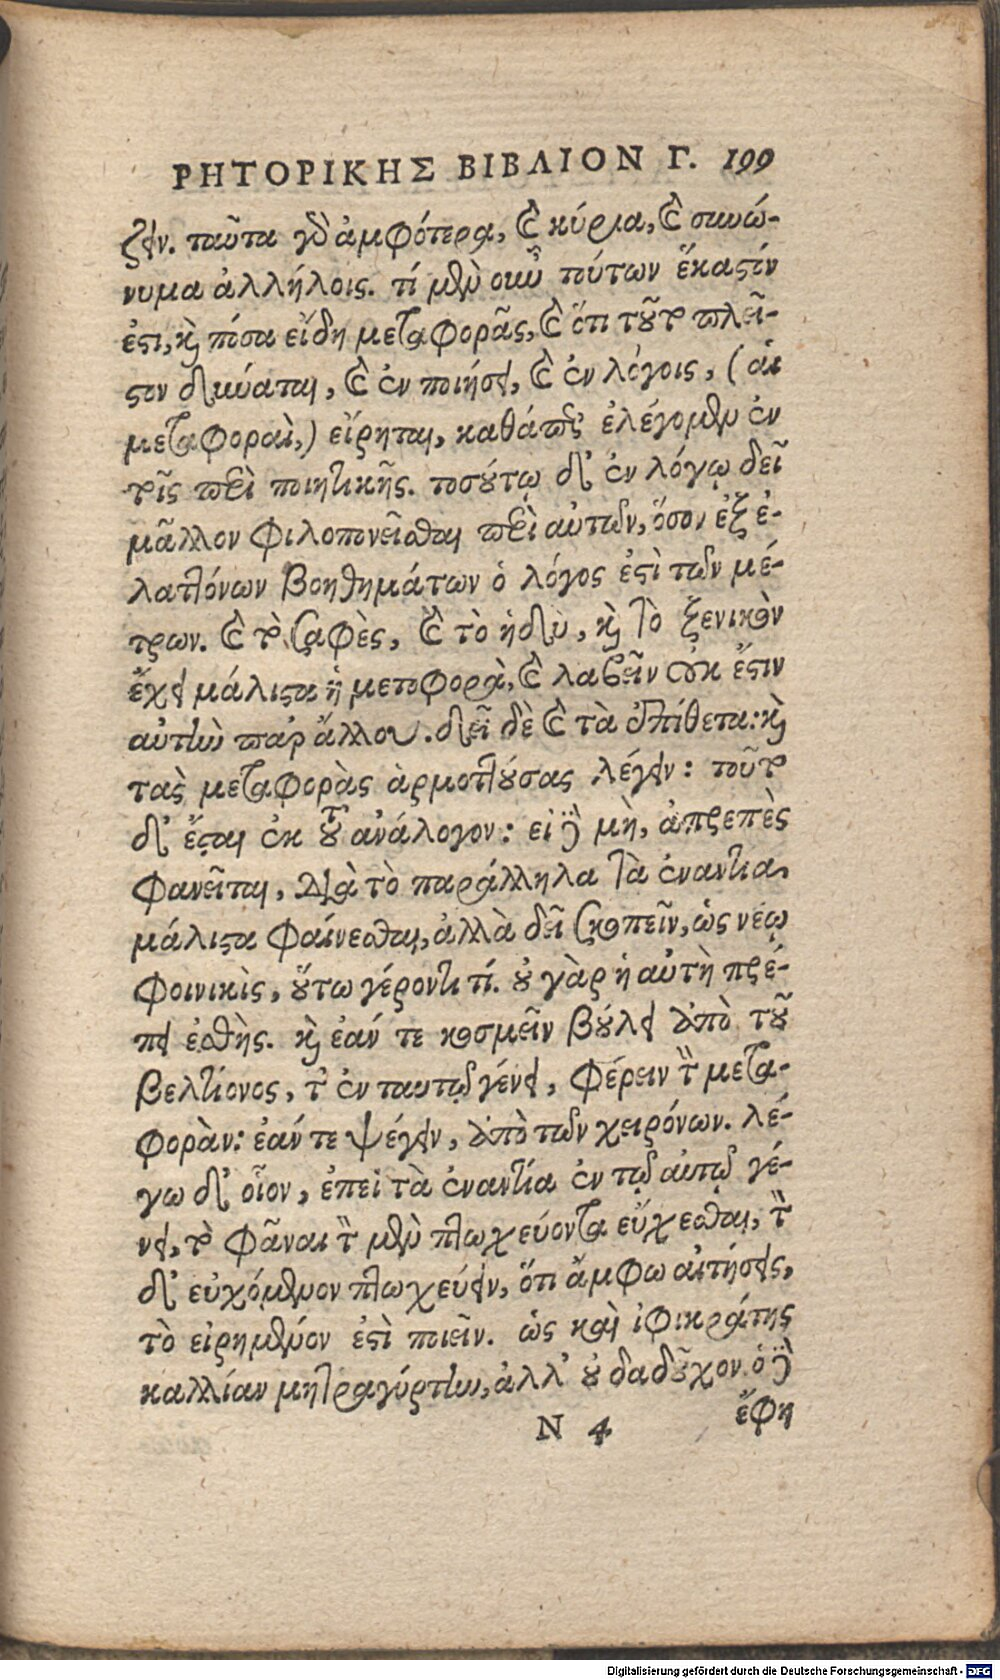 ΡΗΤΟΡΙΚΗΣ ΒΙΒΛΙΟΝ Γ. 199
ζειν. ταῦτα γὰρ ἀμφότερα, καὶ κύρια, καὶ συνώ-
νυμα ἀλλήλοις. τί μὲν οὖν τούτων ἕκαστόν
ἐστι, καὶ πόσα εἴδη μεταφορᾶς, καὶ ὅτι τοῦτο πλεῖ-
στον δύναται, καὶ ἐν ποιήσει, καὶ ἐν λόγοις, (αἱ
μεταφοραὶ,) εἴρηται, καθάπερ ἐλέγομεν ἐν
τοῖς περὶ ποιητικῆς. τοσούτῳ δ' ἐν λόγῳ δεῖ
μᾶλλον φιλοπονεῖσθαι περὶ αὐτῶν, ὅσον ἐξ ἐ-
λαττόνων βοηθημάτων ὁ λόγος ἐστὶ τῶν μέ-
τρων. καὶ τὸ σαφὲς, καὶ τὸ ἡδὺ, καὶ τὸ ξενικὸν
ἔχει μάλιστα ἡ μεταφορὰ, καὶ λαβεῖν οὐκ ἔστιν
αὐτὴν παρ' ἄλλου. δεῖ δὲ καὶ τὰ ἐπίθετα: καὶ
τὰς μεταφορὰς ἁρμοττούσας λέγειν: τοῦτο
δ' ἔσται ἐκ τοῦ ἀνάλογον: εἰ δὲ μὴ, ἀπρεπὲς
φανεῖται, διὰ τὸ παράλληλα τὰ ἐναντία
μάλιστα φαίνεσθαι, ἀλλὰ δεῖ σκοπεῖν, ὡς νέῳ
φοινικὶς, οὕτω γέροντι τί. οὐ γὰρ ἡ αὐτὴ πρέ-
πει ἐσθὴς. καὶ ἐάν τε κοσμεῖν βούλει ἀπὸ τοῦ
βελτίονος, τ' ἐν ταυτῷ γένει, φέρειν τὴν μετα-
φορὰν: ἐάν τε ψέγειν, ἀπὸ τῶν χειρόνων. λέ-
γω δ' οἷον, ἐπεὶ τὰ ἐναντία ἐν τῷ αὐτῷ γέ-
νει, τὸ φᾶναι τὸν μὲν πτωχεύοντα εὔχεσθαι, τὸν
δ' εὐχόμενον πτωχεύειν, ὅτι ἄμφω αἰτήσεις,
τὸ εἰρημένον ἐστὶ ποιεῖν. ὡς καὶ ἰφικράτης
καλλίαν μητραγύρτην, ἀλλ' οὐ δαδοῦχον. ὁ δὲ
Ν 4 ἔφη
Digitalisierung gefördert durch die Deutsche Forschungsgemeinschaft - DFG